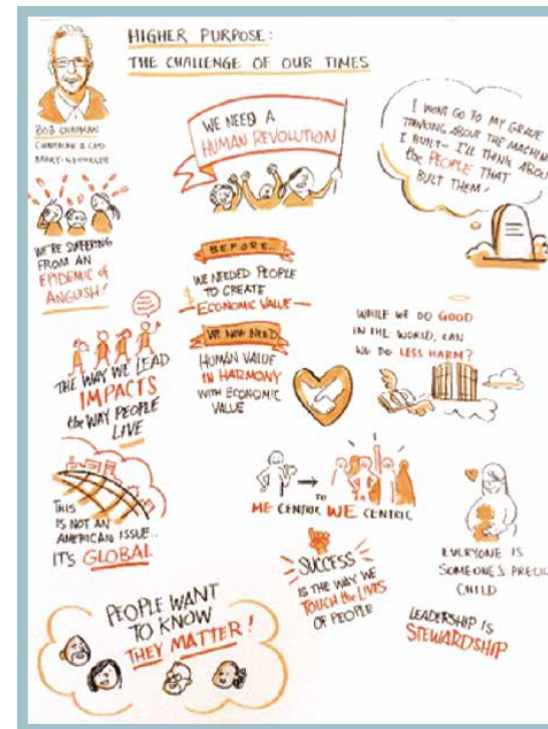 HIGHER PURPOSE:
THE CHALLENGE OF OUR TIMES
BOB CHAPMAN
CHAIRMAN & CEO
BARRY-WEHMILLER
WE NEED A
HUMAN REVOLUTION
I WONT GO TO MY GRAVE
THINKING ABOUT THE MACHIN
I BUILT – I'LL THINK ABOU
the PEOPLE THAT
BUILT THEM!
WE'RE SUFFERING
FROM AN
EPIDEMIC of
ANGUISH!
BEFORE..
WE NEEDED PEOPLE
TO CREATE
ECONOMIC VALUE
WE NOW NEED
HUMAN VALUE
IN HARMONY
WITH ECONOMIC
VALUE
WHILE WE DO GOOD
IN THE WORLD, CAN
WE DO LESS HARM?
THE WAY WE LEAD
IMPACTS
the WAY PEOPLE
LIVE
THIS
IS NOT AN
AMERICAN ISSUE..
IT'S GLOBAL
TO
ME CENTRIC WE CENTRIC
SUCCESS
IS THE WAY WE
TOUCH the LIVES
OF PEOPLE
EVERYONE IS
SOMEONE'S PRECIO
CHILD
LEADERSHIP IS
STEWARDSHIP
PEOPLE WANT
TO KNOW
THEY MATTER!